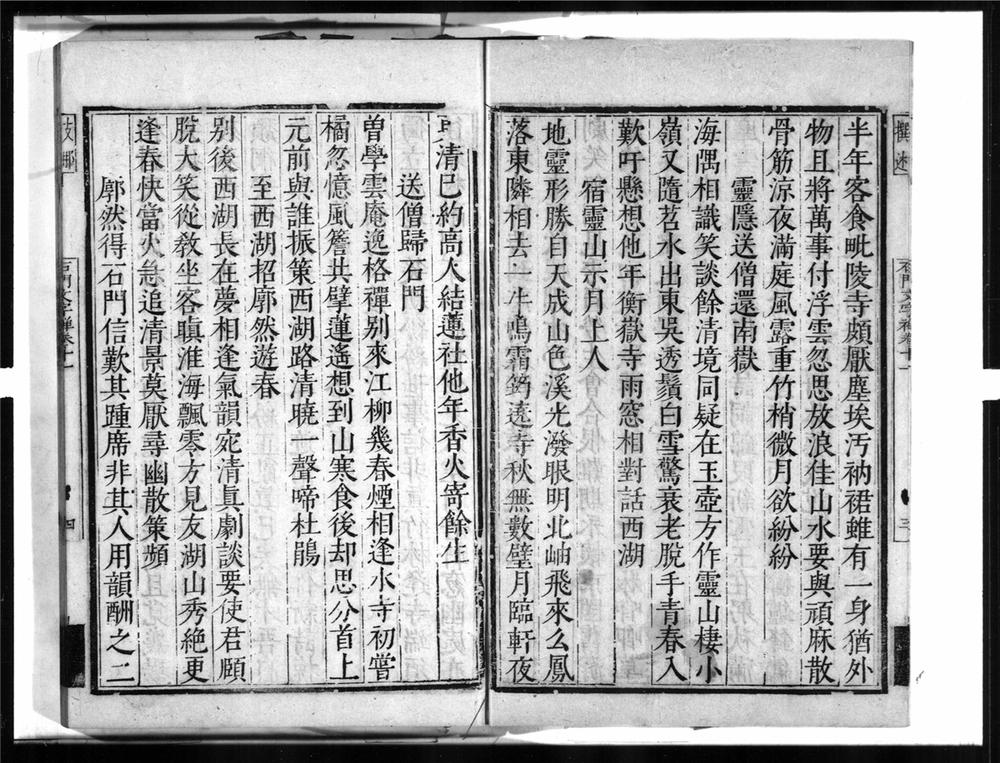 半年客食毗陵寺頗厭塵埃汚衲裙雖有一身猶外
物且將萬事付浮雲忽思放浪佳山水要與頑麻散
骨筋涼夜滿庭風露重竹梢微月欲紛紛
靈隱送僧還南嶽
海隅相識笑談餘清境同疑在玉壺方作靈山棲小
嶺又隨苕水出東吳透鬚白雪驚衰老脫手青春入
歎吁懸想他年衡嶽寺雨窓相對話西湖
宿靈山示月上人
地靈形勝自天成山色溪光潑眼明北岫飛來么鳳
落東隣相去一牛鳴霜筠遶寺秋無數璧月臨軒夜
清已約高人結蓮社他年香火寄餘生
送僧歸石門
曽學雲庵逸格禪別來江柳幾春煙相逢水寺初嘗
橘忽憶風簷共擘蓮遙想到山寒食後却思分首上
元前與誰振策西湖路清曉一聲啼杜鵑
至西湖招廓然遊春
別後西湖長在夢相逢氣韻宛清真劇談要使君頤
脫大笑從教坐客瞋淮海飄零方見友湖山秀絶更
逢春快當火急追清景莫厭尋幽散策頻
廓然得石門信歎其踵席非其人用韻酬之二
石門文字禪卷十一
三
石門文字禪卷十一
四